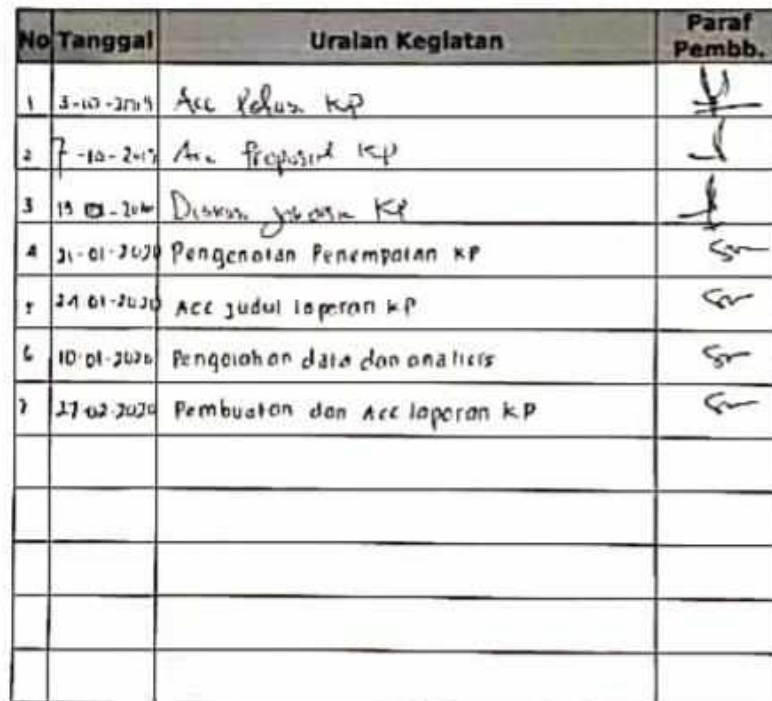 No Tanggal Uraian Kegiatan Paraf Pembb.
1 3-10-2019 Acc KP
2 7-10-2019 Acc Proposal KP
3 Diskusi KP
4 21-01-2020 Pengenalan Penempatan KP
5 24 01-2020 Acc Judul laporan KP
6 10-01-2020 Pengolahan data dan analisis
7 27-02-2020 Pembuatan dan Acc laporan KP